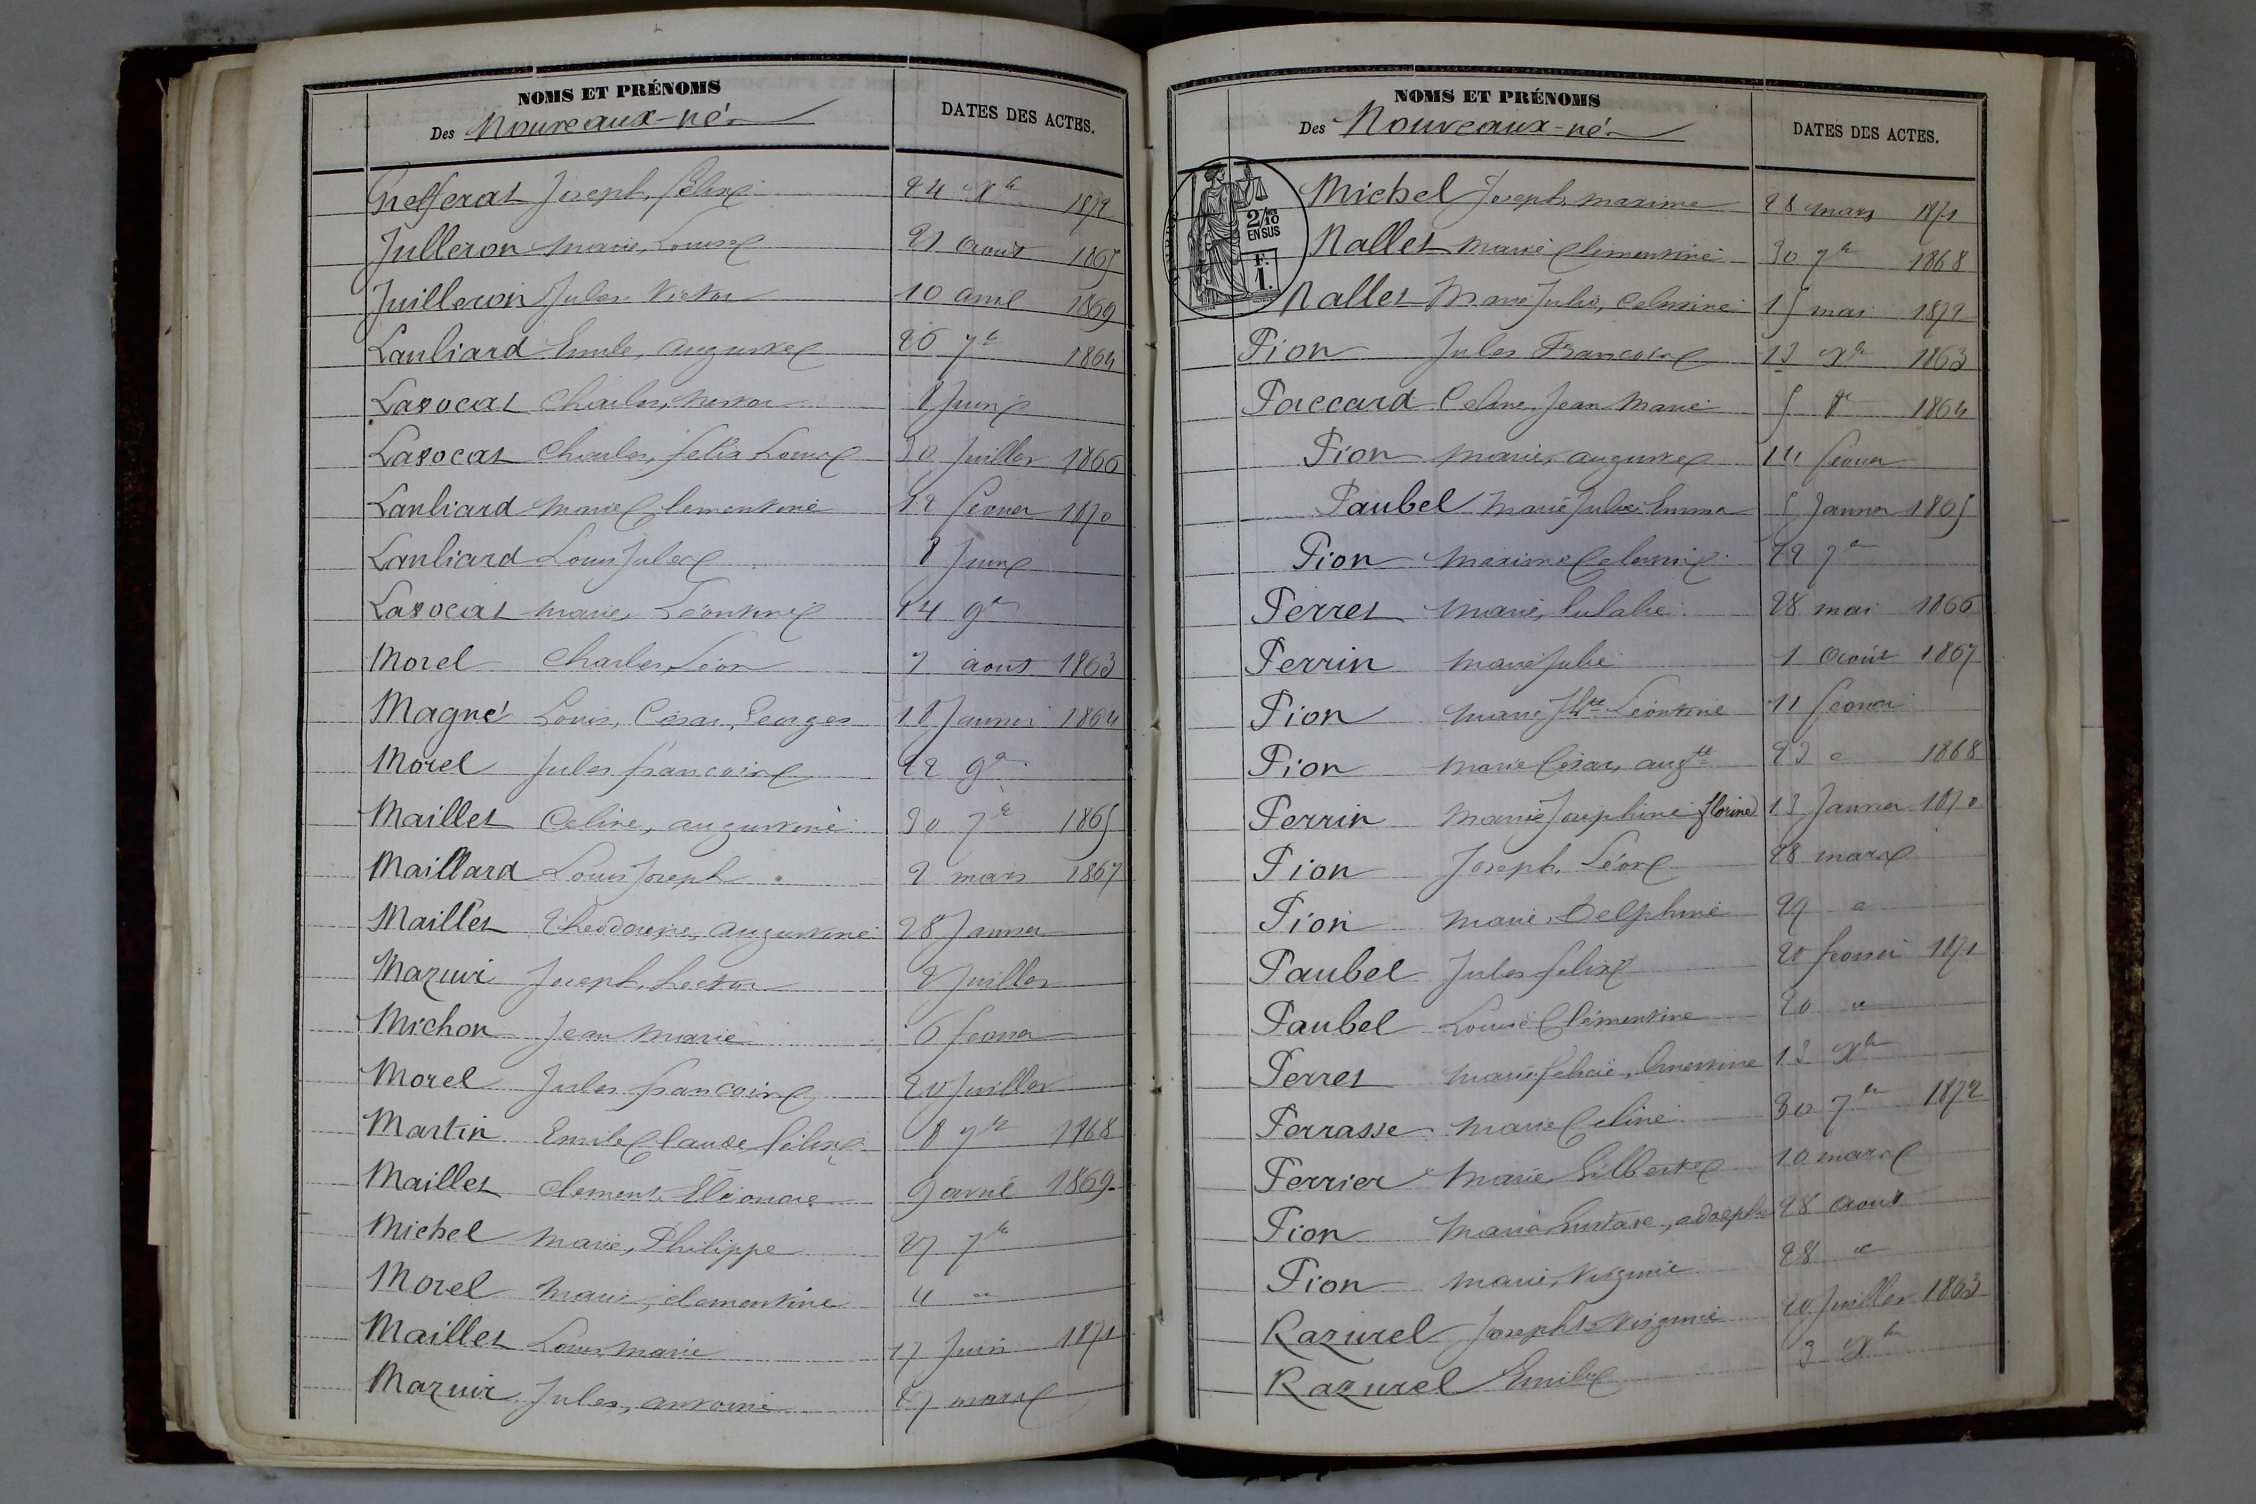 NOMS ET PRÉNOMS
Des Nouveaux-nés
DATES DES ACTES.
Grefferat Joseph, félix 24 Xbre 1872
Julleron Marie, Louise 21 Août 1865
Juilleron Jules Victor 10 avril 1869
Lanliard Emile, auguste 26 7bre 1864
Lavocat Charles, Nestor 8 Juin
Lavocat Charles, félix Louis 30 Juillet 1866
Lanliard Marie Clementine 12 février 1870
Lanliard Louis Jules 8 Juin
Lavocat Marie, Léontine 14 9bre
Morel Charles, Léon 7 août 1863
Magné Louis, César, Georges 18 Janvier 1864
Morel Jules françois 22 9bre
Maillet Celine, augustine 30 7bre 1865
Maillard Louis Joseph 2 mars 1867
Maillet augustine 28 Janvier
Mazuir Joseph, hector 2 Juillet
Michon Jean Marie 6 fevrier
Morel Jules françois 20 Juillet
Martin Emile Claude félix 8 7bre 1868
Maillet Clement, Eléonore 9 avril 1869
Michel Marie, Philippe 27 7bre
Morel Marie, clementine 4 "
Maillet Louis, Marie 17 Juin 1871
Mazuir Jules, antoine 27 mars
NOMS ET PRÉNOMS
Des Nouveaux-nés
DATES DES ACTES.
2/10 EN SUS
F. 1.
Michel Joseph, maxime 28 mars 1871
Nallet Marie Clementine 30 7bre 1868
Nallet Marie Julie, Celestine 15 mai 1872
Pion Jules François 13 Xbre 1863
Paccard Celine Jean Marie 5 8bre 1864
Pion Marie, auguste 14 fevrier
Paubel Marie Julie Emma 5 Janvier 1865
Pion Maxime Celestin 22 7bre
Perret Marie, Eulalie 28 mai 1866
Perrin Marie Julie 1 Août 1867
Pion Marie Léontine 11 fevrier
Pion Marie César, augte 23 " 1868
Perrin Marie Josephine florine 13 Janvier 1870
Pion Joseph, Léon 28 mars
Pion Marie, Delphine 29 "
Paubel Jules félix 20 fevrier 1871
Paubel Louise Clémentine 20 "
Perret Marie félicie, Ernestine 13 Xbre
Perrasse Marie Celine 30 7bre 1872
Perrier Marie Gilberte 10 mars
Pion Marie Gustave, adolphe 28 août
Pion Marie, Virginie 28 "
Razurel Josephte Virginie 20 Juillet 1863
Razurel Emile 3 Xbre